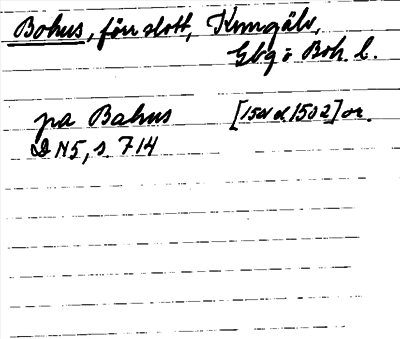 Bohus, förr slott, Kungälv,
Gbg o Boh. l.
pa Bahus [1501 el 1502] or.
DN 5, s 714